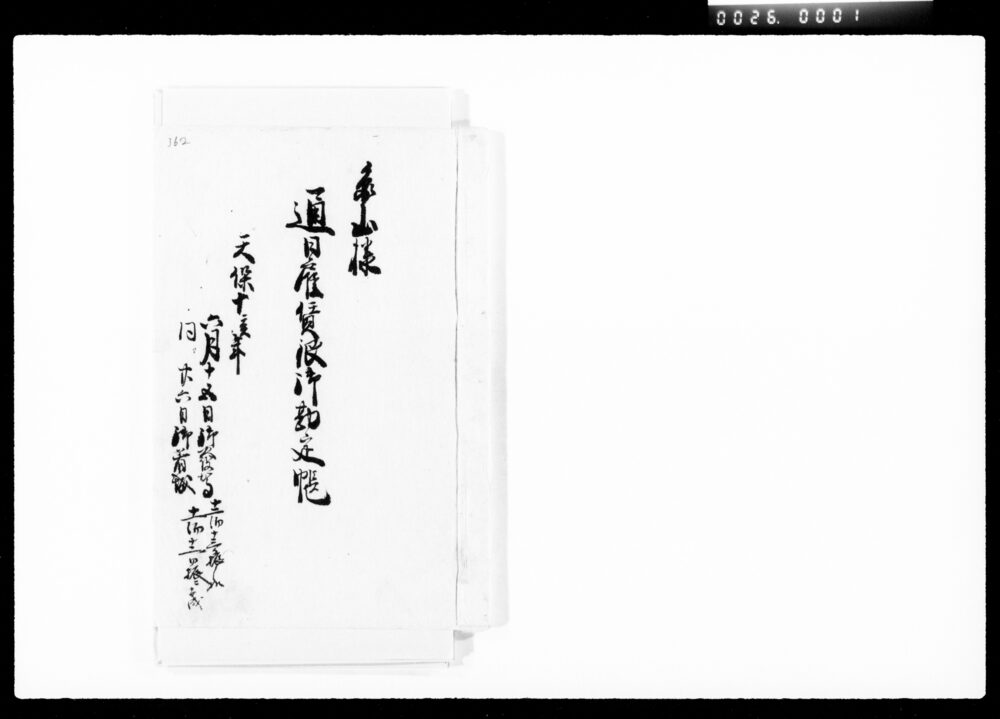 0026. 0001
362
亀山様
通日雇賃銀御勘定帳
天保十亥年
六月十五日御發駕
同 廿六日御着城